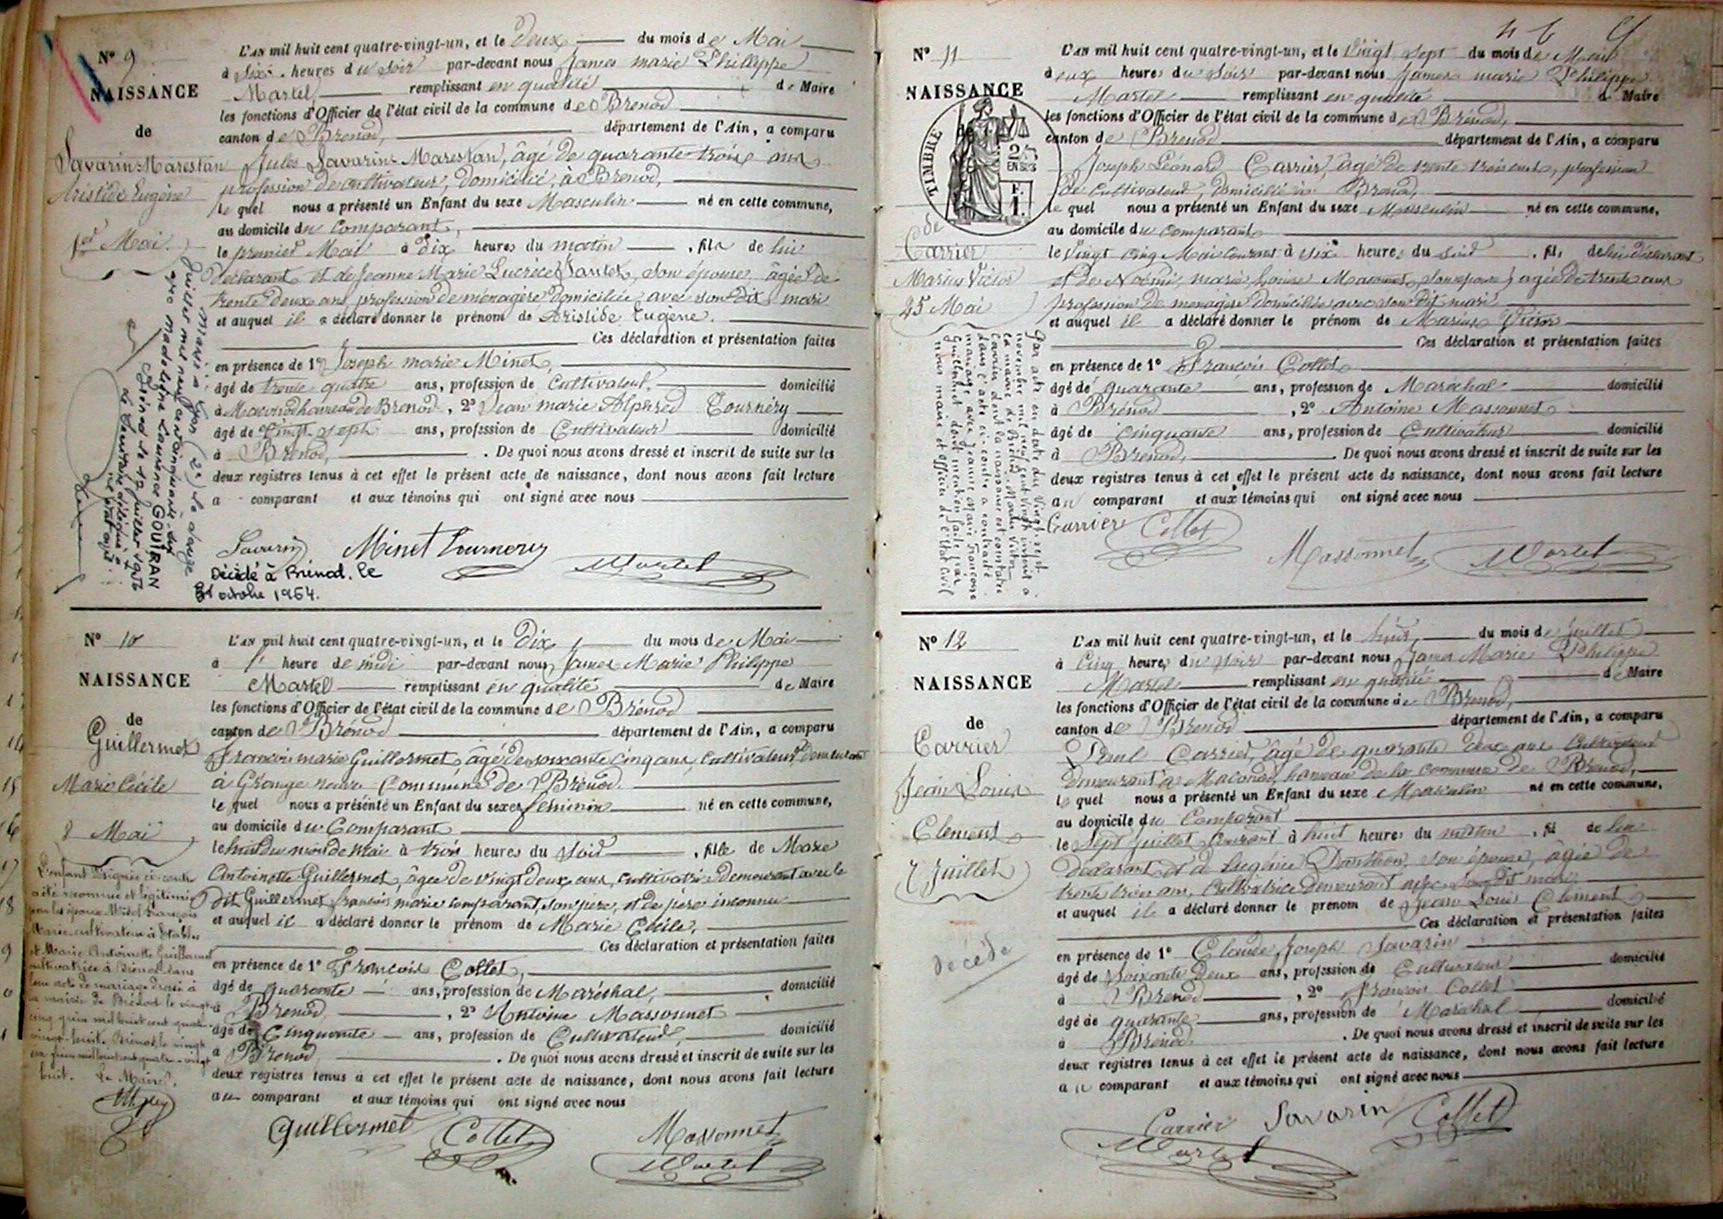 N° 9
NAISSANCE
de
Savarin Marestan
Aristide Eugène
1er Mai
L'AN mil huit cent quatre-vingt-un, et le deux du mois de Mai
à six heures du soir par-devant nous James marie Philippe
Martel remplissant en qualité de Maire
les fonctions d'Officier de l'état civil de la commune de Brenod
canton de Brenod, département de l'Ain, a comparu
Jules Savarin Marestan, âgé de quarante trois ans
profession de cultivateur, domicilié à Brenod,
le quel nous a présenté un Enfant du sexe Masculin né en cette commune,
au domicile du comparant,
le premier Mai à dix heures du matin, fils de lui
déclarant et de Jeanne Marie Lucrèce, son épouse âgée de
trente deux ans, profession de ménagère domiciliée avec son dit mari
et auquel il a déclaré donner le prénom de Aristide Eugène.
Ces déclaration et présentation faites
en présence de 1° Joseph marie Minet,
âgé de trente quatre ans, profession de Cultivateur domicilié
à hameau de Brenod, 2° Jean marie Alphred Tournéry
âgé de vingt seph ans, profession de Cultivateur domicilié
à Brenod, . De quoi nous avons dressé et inscrit de suite sur les
deux registres tenus à cet effet le présent acte de naissance, dont nous avons fait lecture
a comparant et aux témoins qui ont signé avec nous
Savarin Minet Tournery
Martel
Décédé à Brénod. le
31 octobre 1964.
Marié à Lyon (2e) le douze
juillet mil neuf cent cinquante-six
avec madeleine Laurence GOUIRAN
Brénod le 17 juillet 1956
N° 10
NAISSANCE
de
Guillermet
Marie Cécile
8 Mai
L'enfant désignée ci-contre
a été reconnue et légitimée
par les époux Michel François
Marie cultivateur à Iztables
et Marie Antoinette Guillermet
cultivatrice à Brénod dans
leur acte de mariage dressé à
la mairie de Brénod le vingt
cinq juin mil huit cent quatre
vingt-huit. Brénod, le vingt
six juin mil huit cent quatre-vingt
huit. Le Maire,
L'AN mil huit cent quatre-vingt-un, et le dix du mois de Mai
à 1 heure de midi par-devant nous James Marie Philippe
Martel remplissant en qualité de Maire
les fonctions d'Officier de l'état civil de la commune de Brénod
canton de Brénod département de l'Ain, a comparu
François marie Guillermet âgé de soixante cinq ans, cultivateur demeurant
à Grange neuve Commune de Brénod
le quel nous a présenté un Enfant du sexe féminin né en cette commune,
au domicile du Comparant
le huit du mois de mai à trois heures du soir, fille de Marie
Antoinette Guillermet, âgée de vingt deux ans, cultivatrice demeurant avec le
dit Guillermet françois marie comparant, son père, et de père inconnu
et auquel il a déclaré donner le prénom de Marie Cécile,
Ces déclaration et présentation faites
en présence de 1° François Collet,
âgé de quarante ans, profession de Maréshal, domicilié
à Brenod, 2° Antoine Massonnet
âgé de Cinquante ans, profession de Cultivateur domicilié
à Brenod . De quoi nous avons dressé et inscrit de suite sur les
deux registres tenus à cet effet le présent acte de naissance, dont nous avons fait lecture
au comparant et aux témoins qui ont signé avec nous
Guillermet Collet Massonnet
Martel
N° 11
NAISSANCE
de
TIMBRE
EN SUS
F.
1.
de
Carrier
Marius Victor
25 Mai
L'AN mil huit cent quatre-vingt-un, et le vingt sept du mois de Mai
à deux heures du soir par-devant nous James marie Philippe
Martel remplissant en qualité de Maire
les fonctions d'Officier de l'état civil de la commune de Brénod,
canton de Brenod département de l'Ain, a comparu
Joseph Léonard Carrier, âgé de trente trois ans, profession
de Cultivateur domicilié à Brenod
le quel nous a présenté un Enfant du sexe Masculin né en cette commune,
au domicile du comparant
le vingt cinq Mai courant à six heures du soir, fils de lui déclarant
et de Noémi marie louise Massonnet, son épouse, agée de trente ans
profession de menagère domiciliée avec son dit mari
et auquel il a déclaré donner le prénom de Marius Victor
Ces déclaration et présentation faites
en présence de 1° François Collet
âgé de quarante ans, profession de Maréchal domicilié
à Brénod, 2° Antoine Massonnet
âgé de cinquante ans, profession de Cultivateur domicilié
à Brenod, . De quoi nous avons dressé et inscrit de suite sur les
deux registres tenus à cet effet le présent acte de naissance, dont nous avons fait lecture
au comparant et aux témoins qui ont signé avec nous
Carrier Collet
Massonnet Martel
Par acte en date du vingt-sept
novembre mil neuf cent vingt
Carrier dont la naissance est constatée
dans l'acte ci-contre a contracté
mariage avec Jeanne Marie Françoise
Guillermet dont mention faite par
nous maire et officier de l'état civil
N° 12
NAISSANCE
de
Carrier
Jean Louis
Clément
7 Juillet
décédé
L'AN mil huit cent quatre-vingt-un, et le huit du mois de juillet
à cinq heures du soir par-devant nous James Marie Philippe
Martel remplissant en qualité de Maire
les fonctions d'Officier de l'état civil de la commune de Brenod,
canton de Brenod département de l'Ain, a comparu
Paul Carrier âgé de quarante deux ans Cultivateur
demeurant à Macconod, hameau de la commune de Brenod,
le quel nous a présenté un Enfant du sexe Masculin né en cette commune,
au domicile du Comparant
le sept juillet courant à huit heures du matin, fils de lui
déclarant et de Eugénie Danthon, son épouse, âgée de
trente trois ans, Cultivatrice demeurant avec son dit mari
et auquel il a déclaré donner le prénom de Jean Louis Clément
Ces déclaration et présentation faites
en présence de 1° Claude Joseph Savarin
âgé de soixante deux ans, profession de Cultivateur domicilié
à Brenod, 2° françois Collet
âgé de quarante ans, profession de Maréchal domicilié
à Brenod . De quoi nous avons dressé et inscrit de suite sur les
deux registres tenus à cet effet le présent acte de naissance, dont nous avons fait lecture
au comparant et aux témoins qui ont signé avec nous
Carrier Savarin Collet
Martel